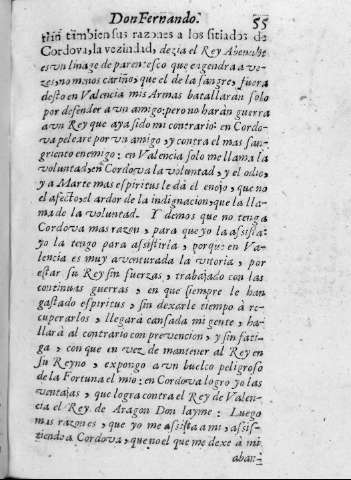 Don Fernando. 55
tian tambien sus razones a los sitiados de
Cordova, la vezindad, dezia el Rey Abenchit
es vn linage de parentesco que engendra a ve-
zes, no menos cariño, que el de la sangre, fuera
desto en Valencia mis Armas batallaràn solo
por defender a vn amigo: pero no haràn guerra
a vn Rey que aya sido mi contrario: en Cordo-
va peleare por vn amigo, y contra el mas san-
griento enemigo: en Valencia solo me llama la
voluntad, en Cordova la voluntad, y el odio,
y a Marte mas espiritus le dà el enojo, que no
el afecto, el ardor de la indignacion, que la lla-
ma de la voluntad. Y demos que no tenga
Cordova mas razon, para que yo la assista:
yo la tengo para assistirla, porque en Va-
lencia es muy aventurada la vitoria, por
estar su Rey sin fuerzas, trabajado con las
continuas guerras, en que siempre le han
gastado espiritus, sin dexarle tiempo à re-
cuperarlos, llegarà cansada mi gente, ha-
llarà al contrario con prevencion, y sin fati-
ga, con que en vez de mantener al Rey en
su Reyno, expongo a vn buelco peligroso
de la Fortuna el mio: en Cordova logro yo las
ventajas, que logra contra el Rey de Valen-
cia el Rey de Aragon Don Iayme: Luego
mas razones, que yo me assista a mi, assis-
tiendo a Cordova, que no el que me dexe à mi
aban-